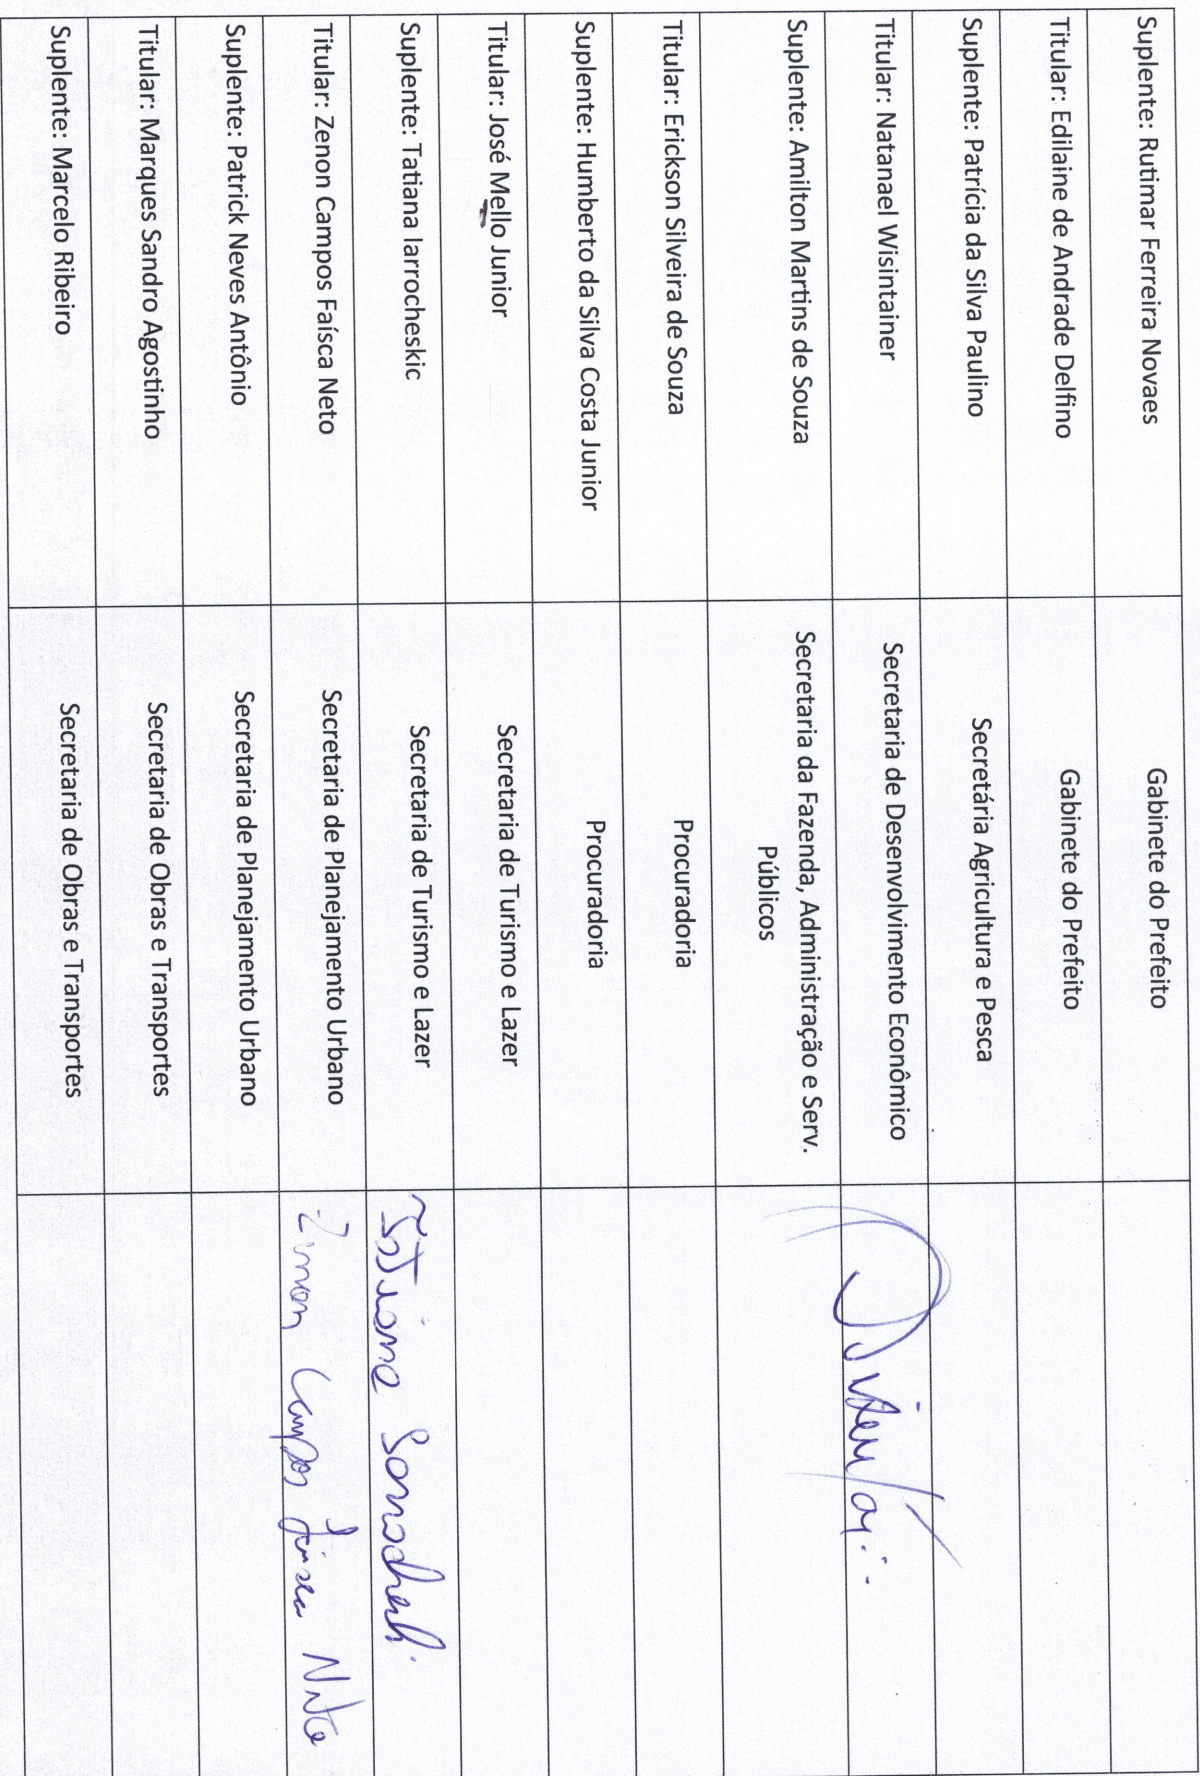 Suplente: Rutimar Ferreira Novaes Gabinete do Prefeito
Titular: Edilaine de Andrade Delfino Gabinete do Prefeito
Suplente: Patrícia da Silva Paulino Secretária Agricultura e Pesca
Titular: Natanael Wisintainer Secretaria de Desenvolvimento Econômico
Suplente: Amilton Martins de Souza Secretaria da Fazenda, Administração e Serv.
Públicos
Titular: Erickson Silveira de Souza Procuradoria
Suplente: Humberto da Silva Costa Junior Procuradoria
Titular: José Mello Junior Secretaria de Turismo e Lazer
Suplente: Tatiana Iarrocheskic Secretaria de Turismo e Lazer Tatiana
Titular: Zenon Campos Faísca Neto Secretaria de Planejamento Urbano Zenon Campos Faísca Neto
Suplente: Patrick Neves Antônio Secretaria de Planejamento Urbano
Titular: Marques Sandro Agostinho Secretaria de Obras e Transportes
Suplente: Marcelo Ribeiro Secretaria de Obras e Transportes